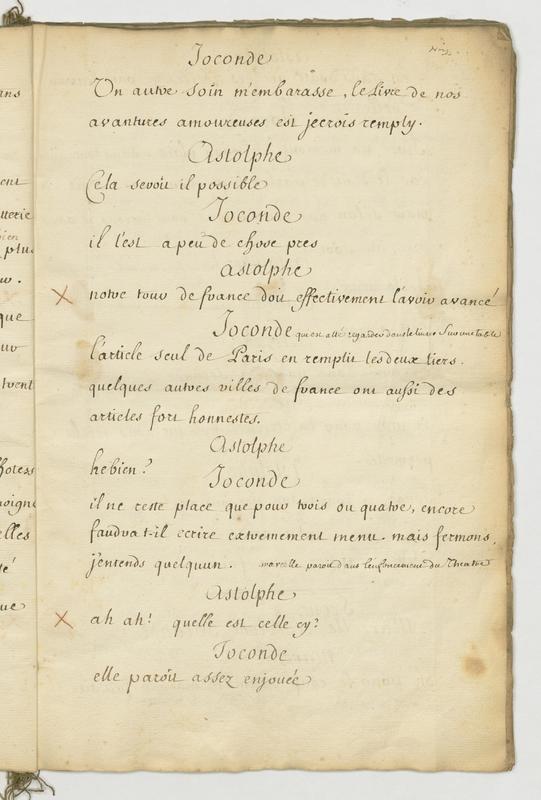 Joconde
Un autre soin m'embarasse, le Livre de nos
avantures amoureuses est je crois remply.
Astolphe
Cela seroit il possible
Joconde
il l'est a peu de chose pres
astolphe
notre tour de france doit effectivement l'avoir avancé
Joconde qui est allé regarder dans le livre sur une table
l'article seul de Paris en remplit les deux tiers.
quelques autres villes de france ont aussi des
articles fort honnestes.
Astolphe
he bien?
Joconde
il ne reste place que pour trois ou quatre, encore
faudra t-il ecrire extremement menu. mais fermons,
j'entends quelquun. marcelle paroit dans l'enfoncement du Theatre
astolphe
ah ah! quelle est celle cy?
Joconde
elle paroit assez enjouée
ans
ent
uerie
bien
plus
que
our
tvent
elles
té
que